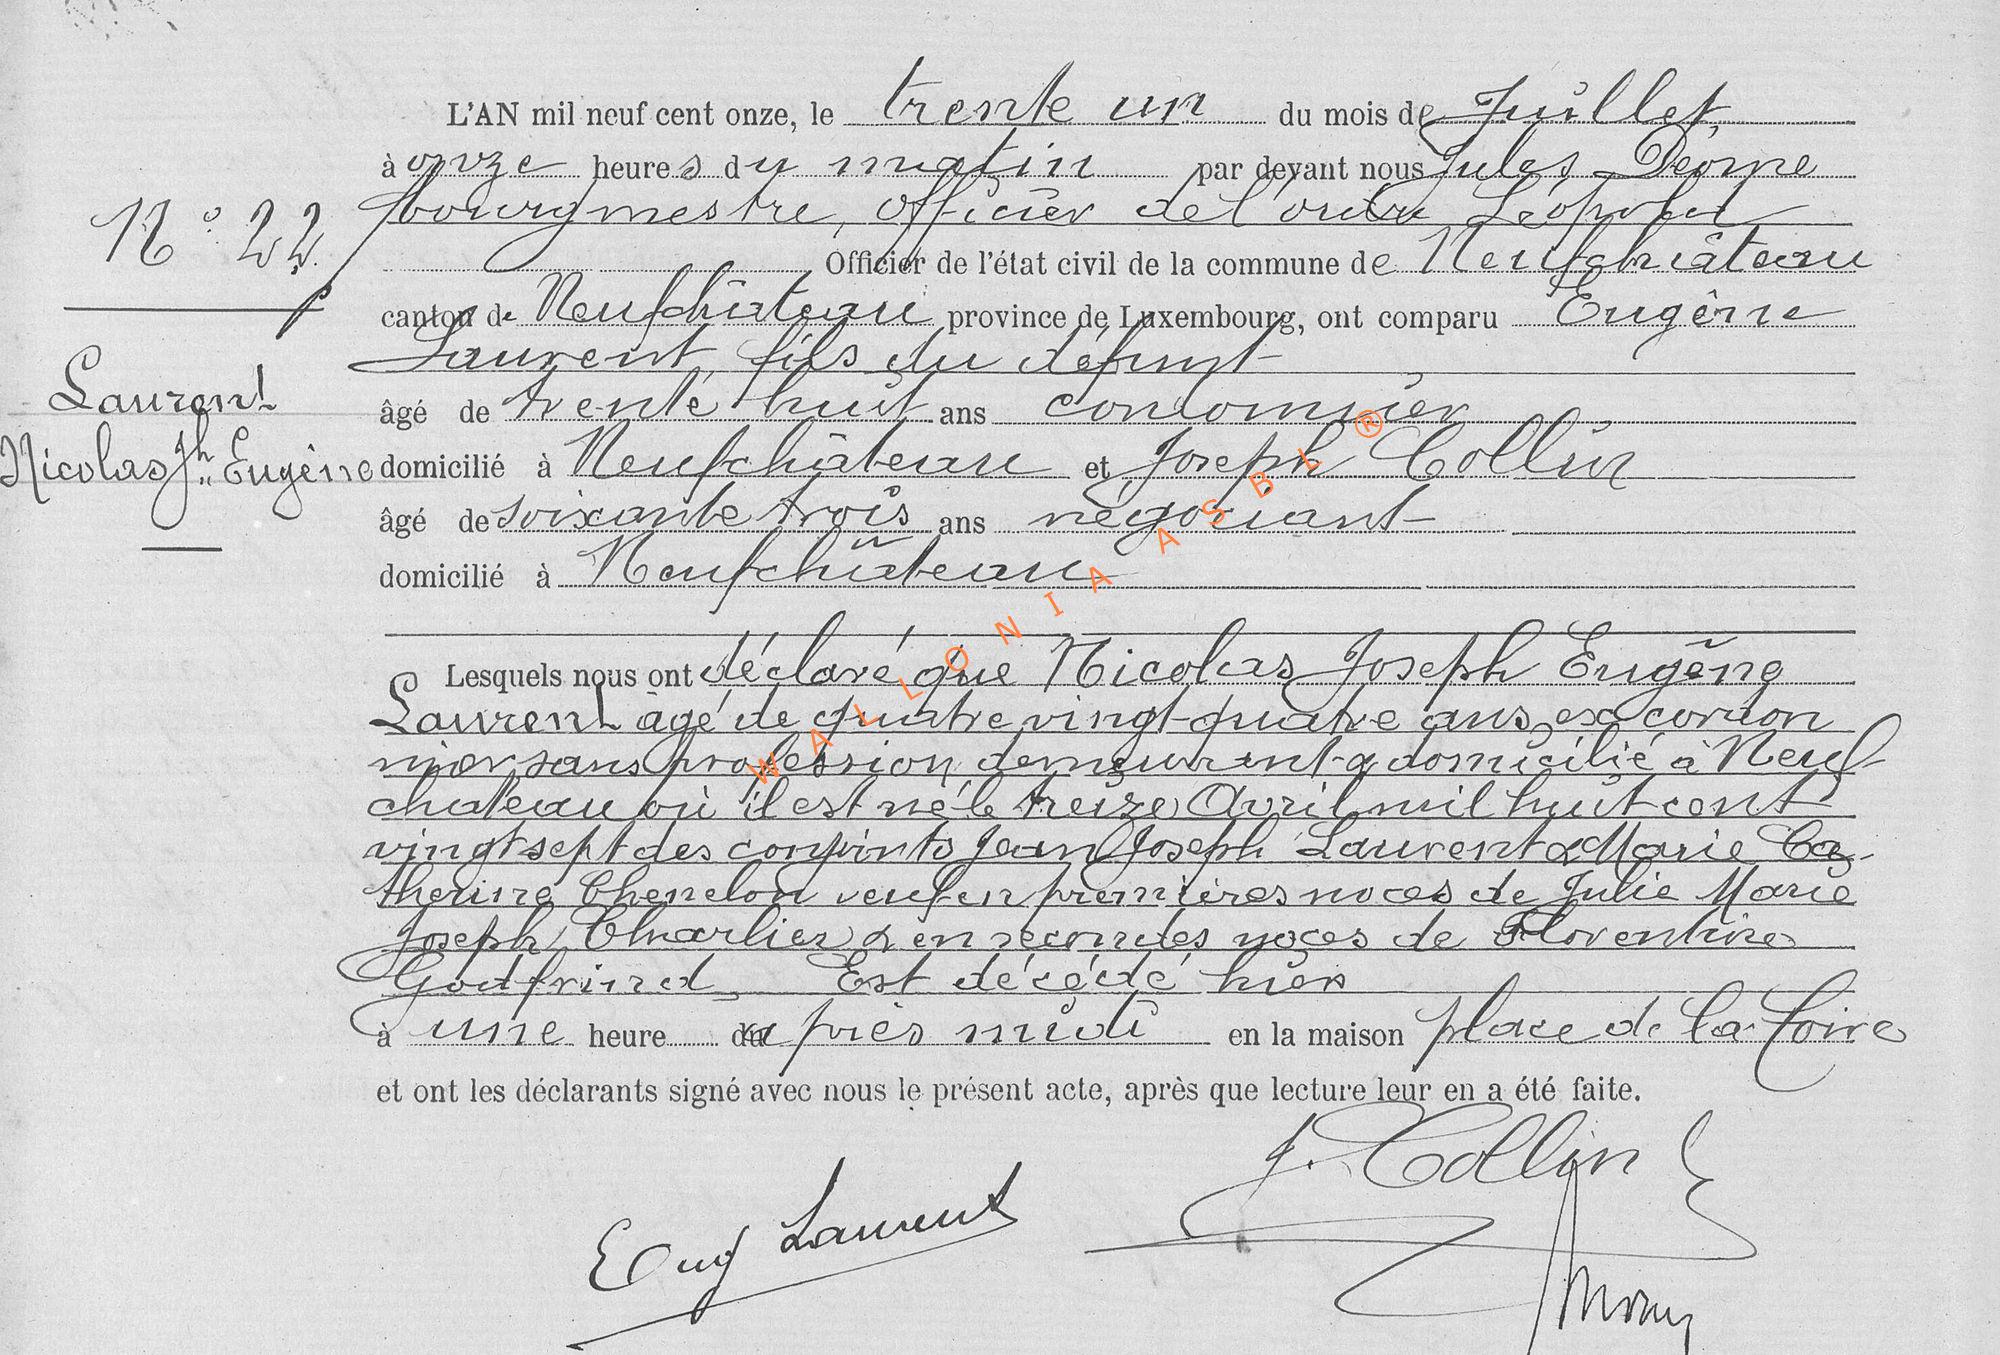 L'AN mil neuf cent onze, le trente un du mois de Juillet,
à onze heures du matin par devant nous Jules
bourgmestre, officier de l'ordre Léopold
N° 22
Officier de l'état civil de la commune de Neufchâteau
canton de Neufchâteau province de Luxembourg, ont comparu Eugène
Laurent, fils du défunt
Laurent
âgé de trente huit ans cordonnier
Nicolas Jh Eugène
domicilié à Neufchâteau et Joseph Collin
âgé de soixante trois ans négociant
domicilié à Neufchâteau
Lesquels nous ont déclaré que Nicolas Joseph Eugène
Laurent âgé de quatre vingt-quatre ans, ex cordon
nier sans profession demeurant & domicilié à Neuf-
château où il est né le treize Avril mil huit cent
vingt sept des conjoints Jean Joseph Laurent & Marie Ca-
therine Chenelon veuf en premières noces de Julie Marie
Joseph Charlier & en secondes noces de Florentine
Godfrind, Est décédé hier
à une heure du après midi en la maison place de la Foire
et ont les déclarants signé avec nous le présent acte, après que lecture leur en a été faite.
J. Collin
Eug Laurent
WALLONIA ASBL ®